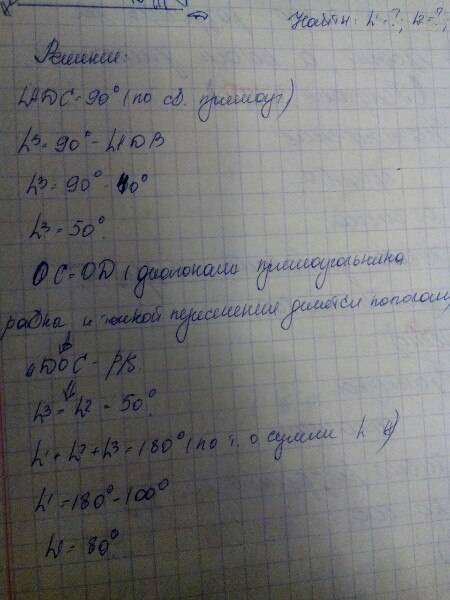 Найти: ∠1-?; ∠2-?;
Решение:
∠ADC=90° (по св. прямоуг)
∠3=90°-∠ADB
∠3=90°-40°
∠3=50°
OC=OD (диагонали прямоугольника
равны и точкой пересечения делятся пополам)
⇓
△DOC - р/б.
⇓
∠3=∠2=50°.
∠1+∠2+∠3=180° (по т. о сумме ∠
∠1=180°-100°
∠1=80°